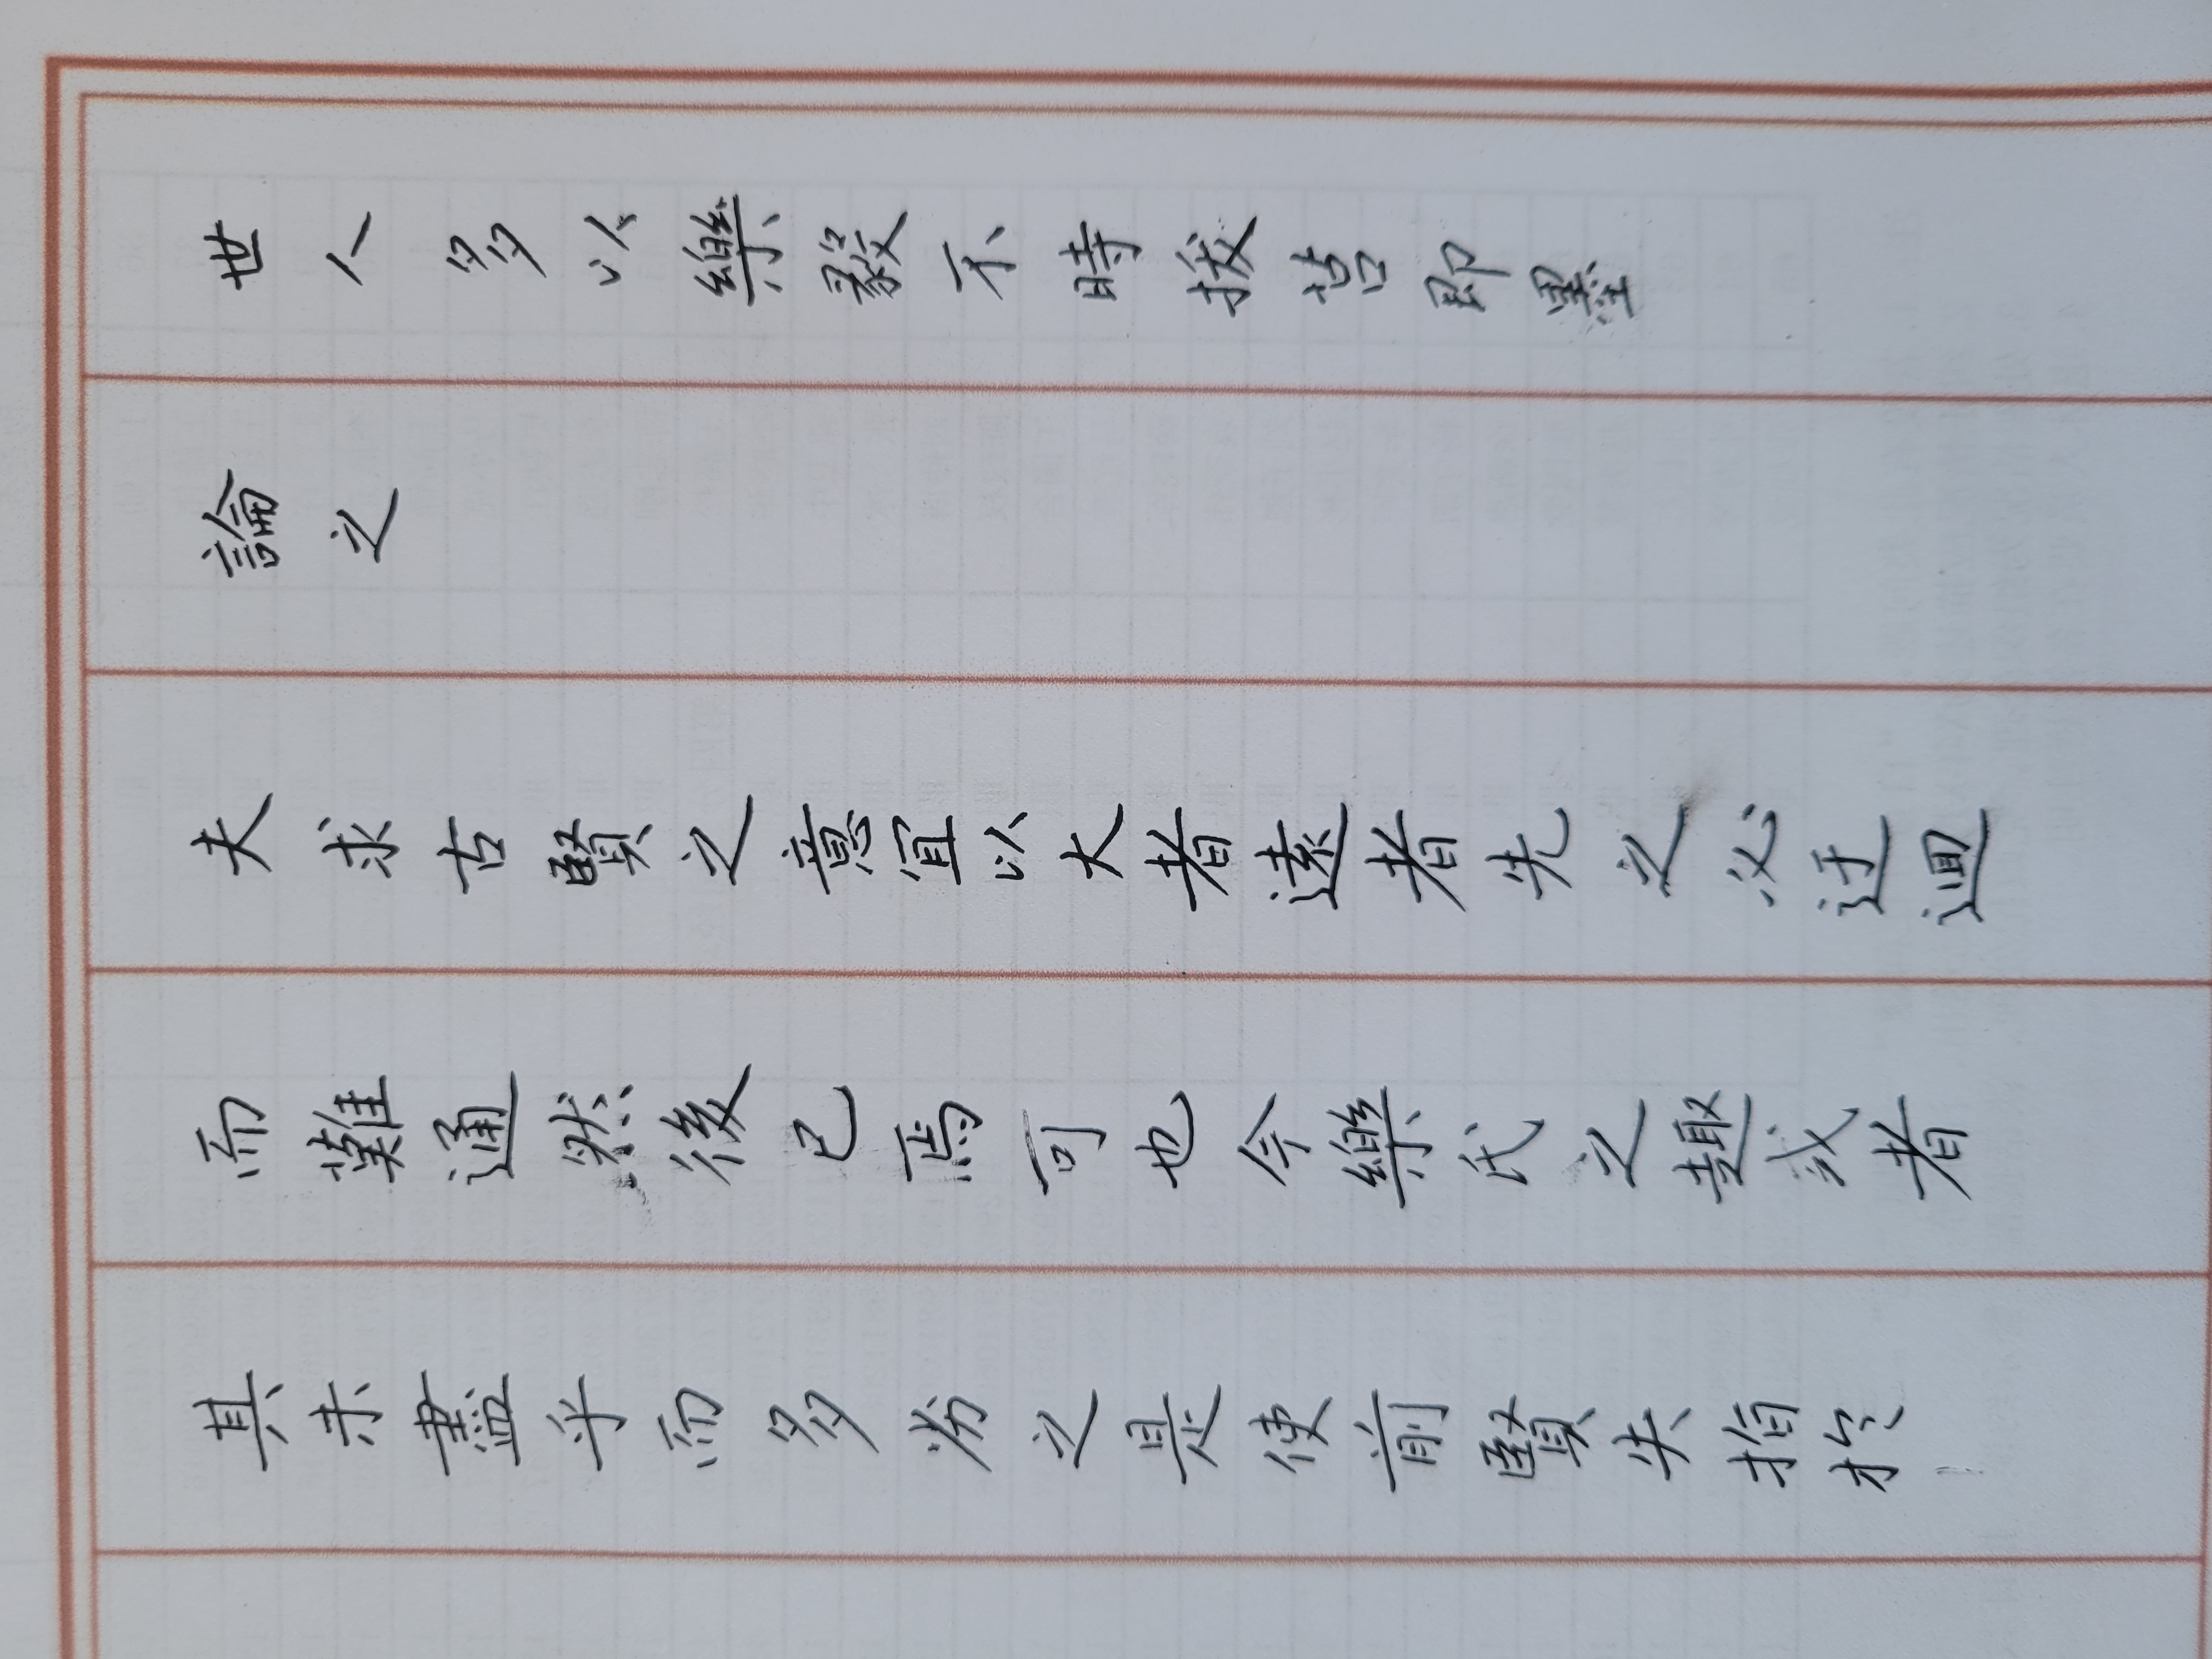 世人多以樂毅不時拔莒即墨
論之
夫求古賢之意宜以大者遠者先之必迂迴
而難通然後已焉可也今樂氏之趣或者
其未盡乎而多劣之是使前賢失指於